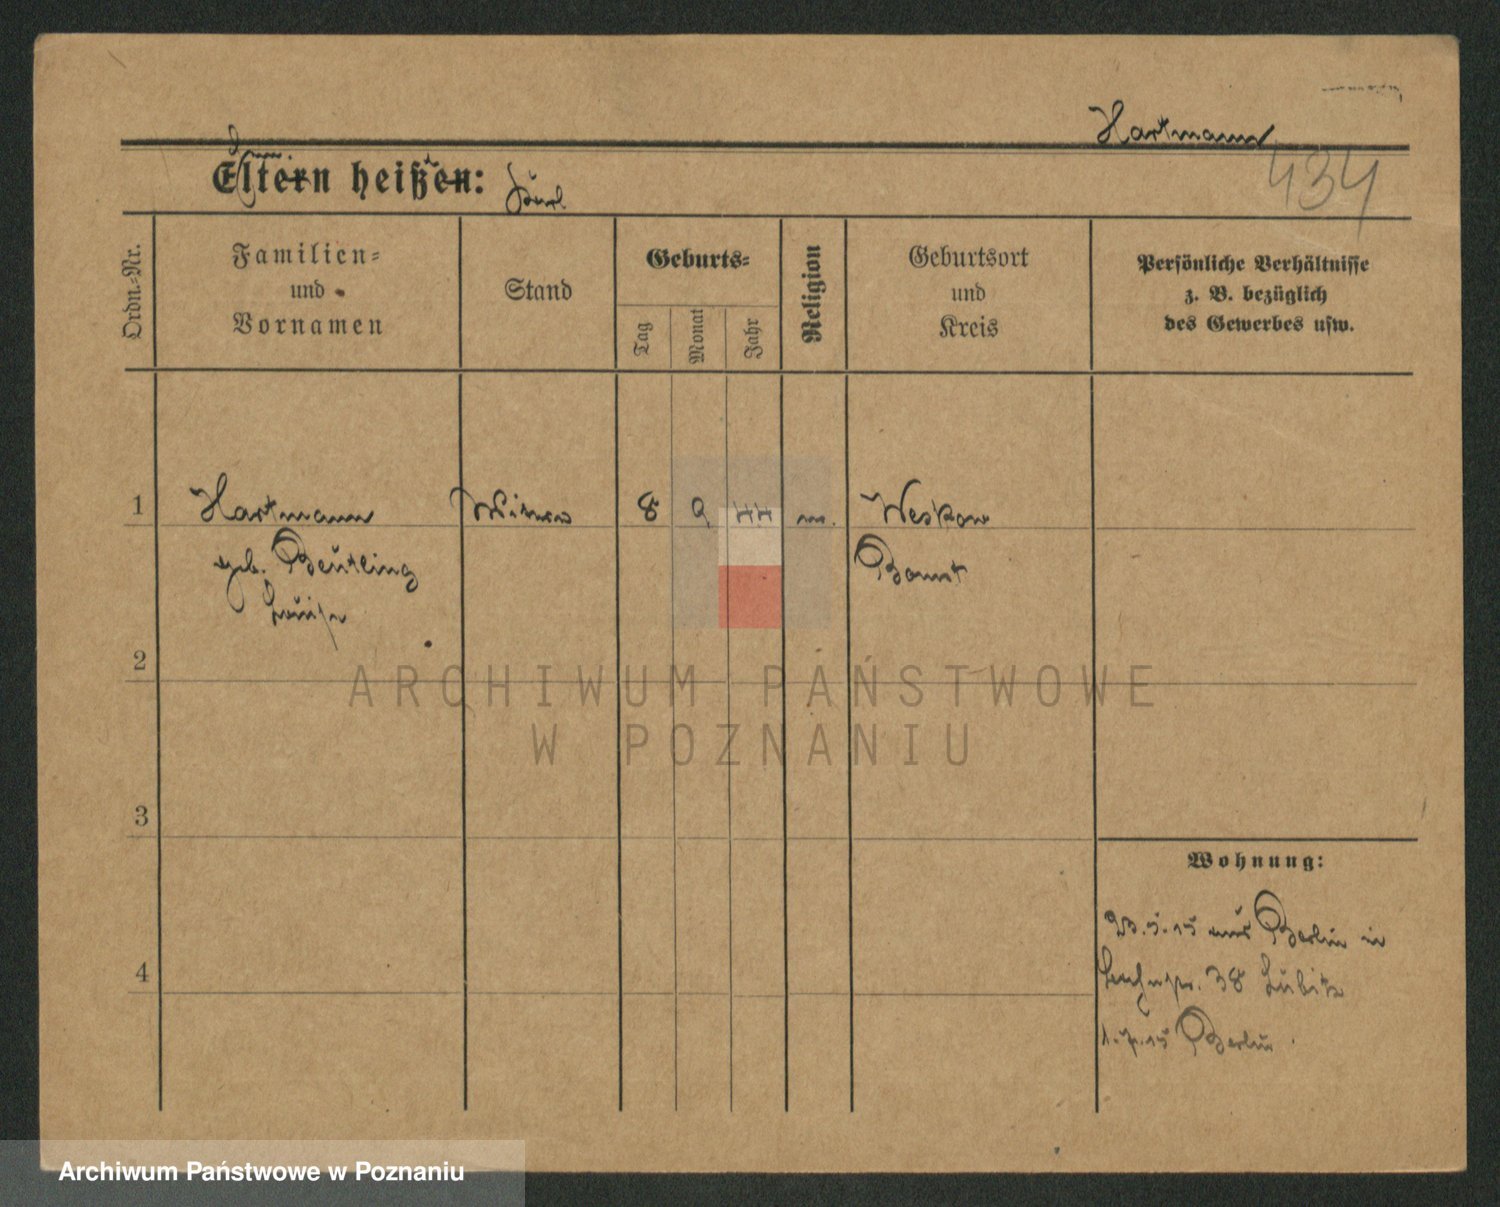 Hartmann
434
Eltern heißen:
Ordn.-Nr.
Familien-
und
Vornamen
Stand
Geburts-
Tag
Monat
Jahr
Religion
Geburtsort
und
Kreis
Persönliche Verhältnisse
z. B. bezüglich
des Gewerbes usw.
1
Hartmann
geb. Beutling
Luise
Witwe
8
9
44
Weskow
Bomst
2
ARCHIWUM PAŃSTWOWE
W POZNANIU
3
4
Wohnung:
23.5.15 aus Berlin in
38 Lubitz
1.7.15 Berlin
Archiwum Państwowe w Poznaniu